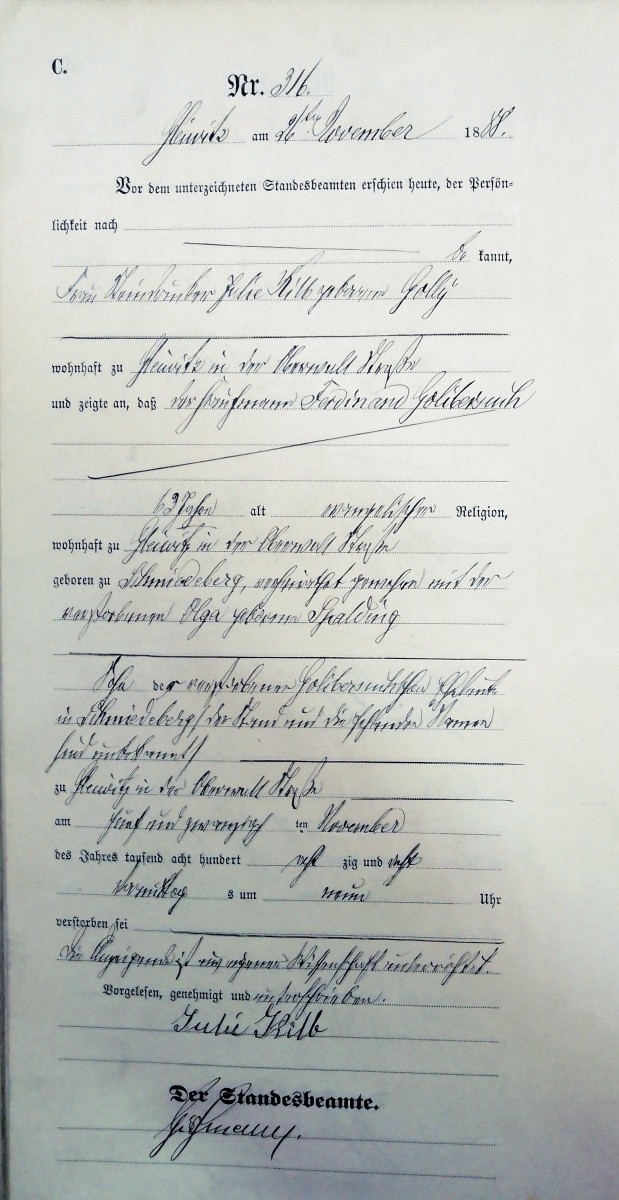 C.
Nr. 316.
Gleiwitz am 26ten November 1888.
Vor dem unterzeichneten Standesbeamten erschien heute, der Persön-
lichkeit nach
be kannt,
Frau Julie Kilb geborene Golly
wohnhaft zu Gleiwitz in der Oberwall Straße
und zeigte an, daß der Kaufmann Ferdinand Golibersuch
62 Jahre alt evangelischer Religion,
wohnhaft zu Gleiwitz in der Oberwall Straße
geboren zu Schmiedeberg, verheirathet gewesen mit der
verstorbenen Olga geborene Spalding
Sohn der verstorbenen Golibersuchschen Eheleute
in Schmiedeberg (der Stand und die fehlenden Namen
sind unbekannt)
zu Gleiwitz in der Oberwall Straße
am fünf und zwanzigsten November
des Jahres tausend acht hundert acht zig und acht
Vormittags um neun Uhr
verstorben sei
Die Anzeigende ist aus eigener Wissenschaft unterrichtet.
Vorgelesen, genehmigt und unterschrieben.
Julie Kilb
Der Standesbeamte.